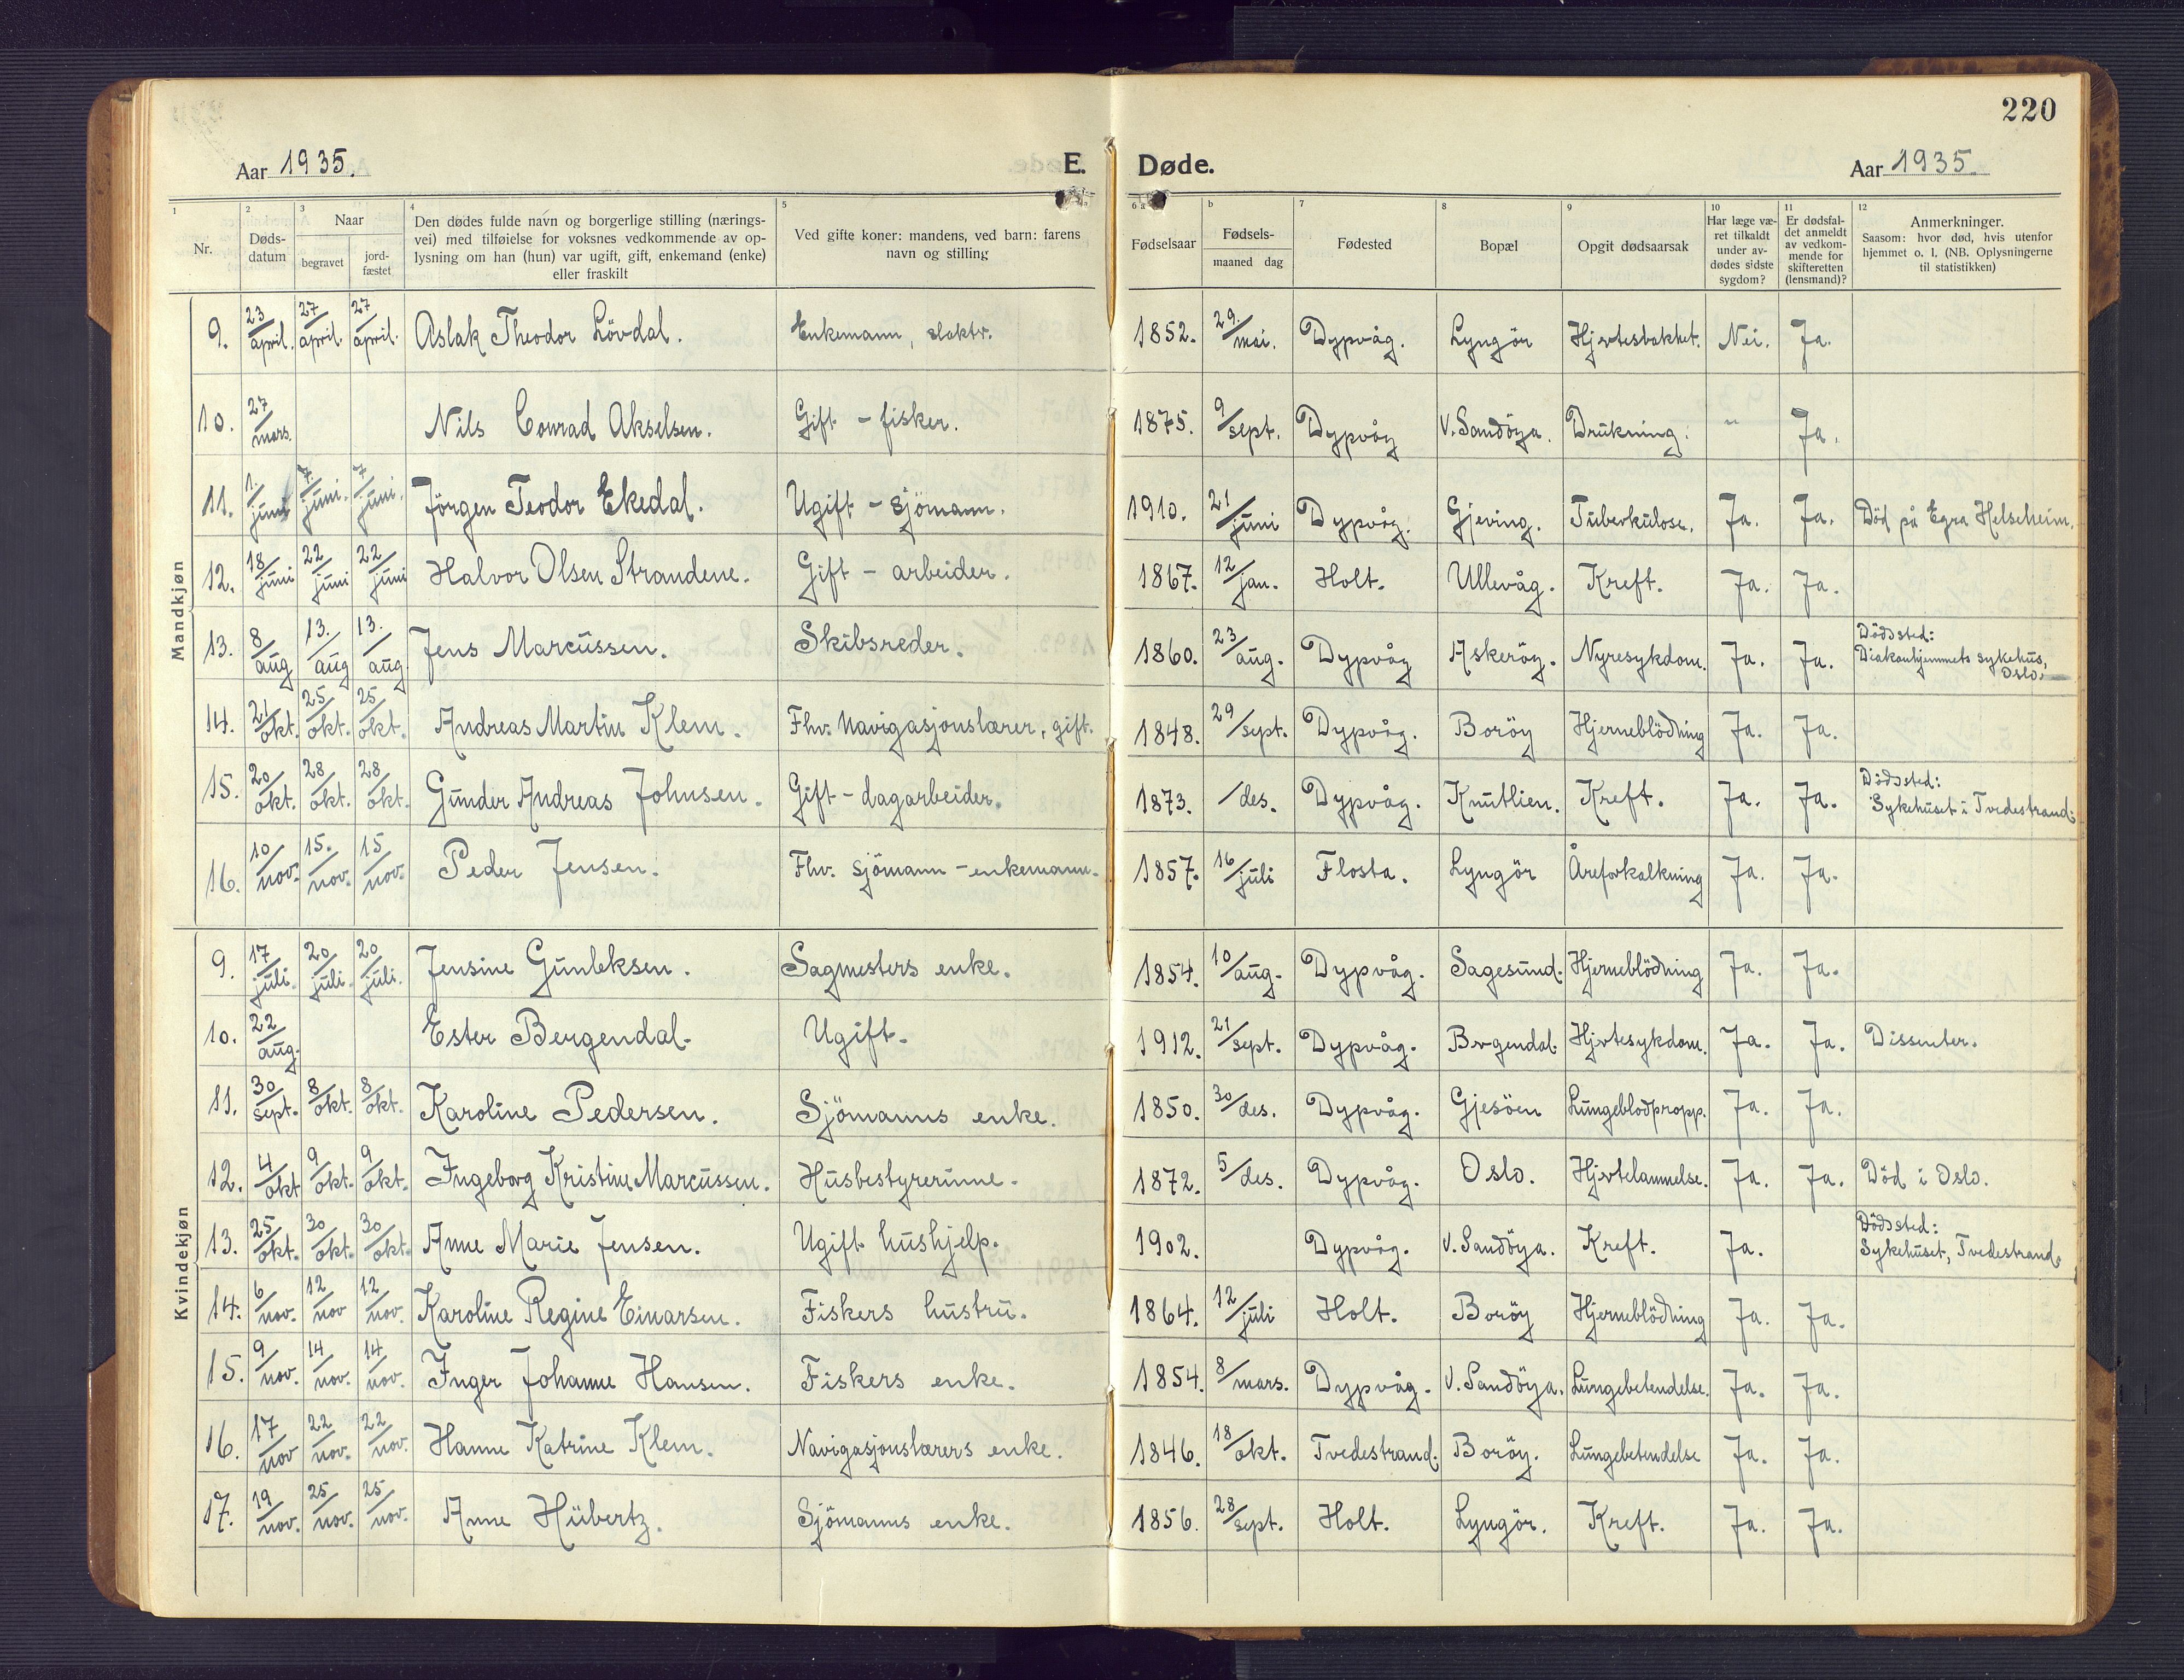 220
Aar 1935.
E. Døde.
Aar 1935.
1 2 3 4 5 6 a b 7 8 9 10 11 12
Nr. | Døds-datum | Naar begravet | jord-fæstet | Den dødes fulde navn og borgerlige stilling (nærings-vei) med tilføielse for voksnes vedkommende av op-lysning om han (hun) var ugift, gift, enkemand (enke) eller fraskilt | Ved gifte koner: mandens, ved barn: farens navn og stilling | Fødselsaar | Fødsels-maaned dag | Fødested | Bopæl | Opgit dødsaarsak | Har læge væ-ret tilkaldt under av-dødes sidste sygdom? | Er dødsfal-det anmeldt av vedkom-mende for skifteretten (lensmand)? | Anmerkninger. Saasom: hvor død, hvis utenfor hjemmet o. l. (NB. Oplysningerne til statistikken)
Mandkjøn
9. 23/april. 27/april. 27/april. Aslak Theodor Lövdal. Enkemann, slaktr. 1852. 29./mai. Dypvåg. Lyngör Hjertesvakhet. Nei. Ja.
10. 27/mars. Nils Conrad Akselsen. Gift - fisker. 1875. 9/sept. Dypvåg V. Sandöya. Drukning. " Ja.
11. 1./juni 7./juni. 7/juni. Jörgen Teodor Ekedal. Ugift - sjömann. 1910. 21/juni Dypvåg. Gjeving. Tuberkulose. Ja. Ja. Död på Egra Helseheim.
12. 18/juni 22/juni 22/juni Halvor Olsen Strandene. Gift - arbeider. 1867. 12/jan. Holt. Ullevåg. Kreft. Ja. Ja.
13. 8/aug 13./aug 13./aug. Jens Marcussen. Skibsreder. 1860. 23/aug. Dypvåg Askeröy. Nyresykdom. Ja. Ja. Dödssted: Diakonhjemmets sykehus, Oslo.
14. 21/okt. 25/okt. 25/okt. Andreas Martin Klem. Fhv. Navigasjonslærer, gift. 1848. 29/sept. Dypvåg. Boröy Hjerneblödning Ja. Ja.
15. 20/okt. 28/okt. 28/okt. Gunder Andreas Johnsen. Gift - dagarbeider. 1873. /des. Dypvåg. Knutlien. Kreft. Ja. Ja. Dödssted: Sykehuset i Tvedestrand.
16. 10/nov. 15./nov. 15/nov. Peder Jensen. Fhv. sjömann - enkemann. 1857. 16/juli Flosta. Lyngör Åreforkalkning Ja. Ja.
Kvindekjøn
9. 17/juli. 20/juli. 20/juli. Jensine Gunleksen. Sagmesters enke. 1854. 10/aug. Dypvåg. Sagesund. Hjerneblödning Ja. Ja.
10. 22/aug. Ester Bergendal. Ugift. 1912. 21/sept. Dypvåg. Bergendal. Hjertesykdom. Ja. Ja. Dissenter.
11. 30/sept. 8/okt. 8/okt. Karoline Pedersen. Sjömanns enke. 1850. 30/des. Dypvåg. Gjesöen Lungeblodpropp. Ja. Ja.
12. 4/okt 9/okt. 9/okt. Ingeborg Kristine Marcussen. Husbestyrerinne. 1872. 5/des. Dypvåg. Oslo. Hjertelammelse. Ja. Ja. Död i Oslo.
13. 25/okt. 30/okt. 30/okt. Anne Marie Jensen. Ugift hushjelp. 1902. Dypvåg. V. Sandöya. Kreft. Ja. Dödssted: Sykehuset, Tvedestrand.
14. 6/nov. 12/nov 12/nov. Karoline Regine Einarsen. Fiskers hustru. 1864. 12/juli Holt. Boröy Hjerneblödning Ja. Ja.
15. 9/nov. 14/nov. 14/nov. Inger Johanne Hansen. Fiskers enke. 1854. 8/mars. Dypvåg. V. Sandöya. Lungebetendelse. Ja. Ja.
16. 17/nov 22/nov. 22/nov. Hanne Katrine Klem. Navigasjonslærers enke. 1846. 18/okt. Tvedestrand. Boröy. Lungebetendelse Ja. Ja.
17. 19/nov. 25/nov. 25/nov. Anne Hübertz. Sjömanns enke. 1856. 28/sept. Holt. Lyngör. Kreft. Ja. Ja.